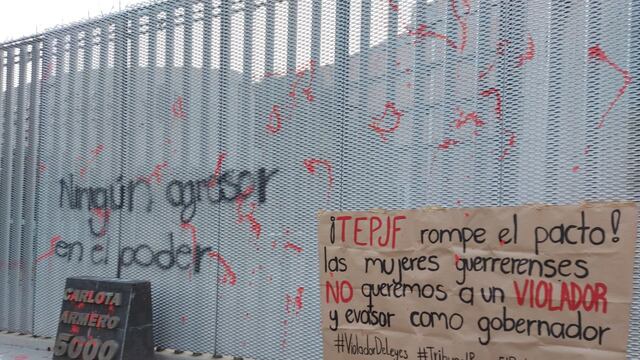 Ningún agresor
en el poder
CARLOTA
ARMERO
5000
¡TEPJF rompe el pacto!
las mujeres guerrerenses
NO queremos a un VIOLADOR
y evasor como gobernador
#VioladorDeLeyes